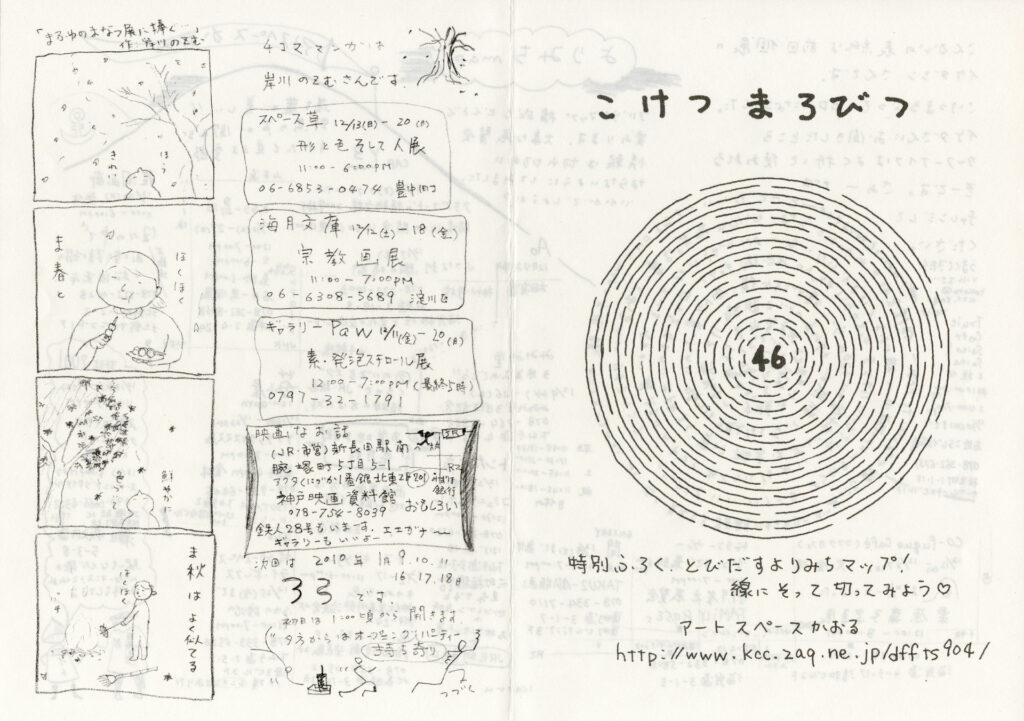 「まろゆのまなつ展に捧ぐ…」
作 岸川のぞむ
ほぅ
きれい
ほくほく
春と
ま
鮮やか
色で
秋はよく似てる
ま
ほくほく
4コママンガは
岸川のぞむさんです。
スペース草 12/13(日)-20(日)
形と色そして人展
11:00-6:00PM
06-6853-0474 豊中市
海月文庫 12/12(土)-18(金)
宗教画展
11:00-7:00PM
06-6308-5689 淀川区
ギャラリー Paw 12/11(金) 20(日)
素・発泡スチロール展
12:00-7:00PM (最終5時)
0797-32-1791
映画なお話
(JR・市営)新長田駅南へ
腕塚町5丁目5-1
アスタくにづか1番館北東2F201
神戸映画資料館
078-754-8039
おもしろい
鉄人28号もいます。エエガナー
ギャラリーもいいよー
次回は 2010年1月9.10.11
16.17.18日
です。
初日は1:00頃から開きます。
夕方からはオープニングパーティー
持ち寄り
つづく
こけつ まろびつ
46
特別ふろく とびだすよりみちマップ!
線にそって切ってみよう♡
アートスペースかおる
http://www.kcc.zaq.ne.jp/dffts904/